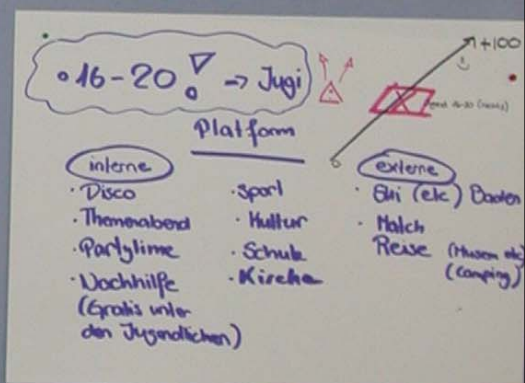 • 16-20 ! → Jugi
+100
Platform
interne
• Disco
• Themenabend
• Partytime
• Nachhilfe
(Gratis unter
den Jugendlichen)
• Sport
• Kultur
• Schule
• Kirche
externe
• Ski (etc) Baden
• Match
Reise (Museum etc)
(Camping)